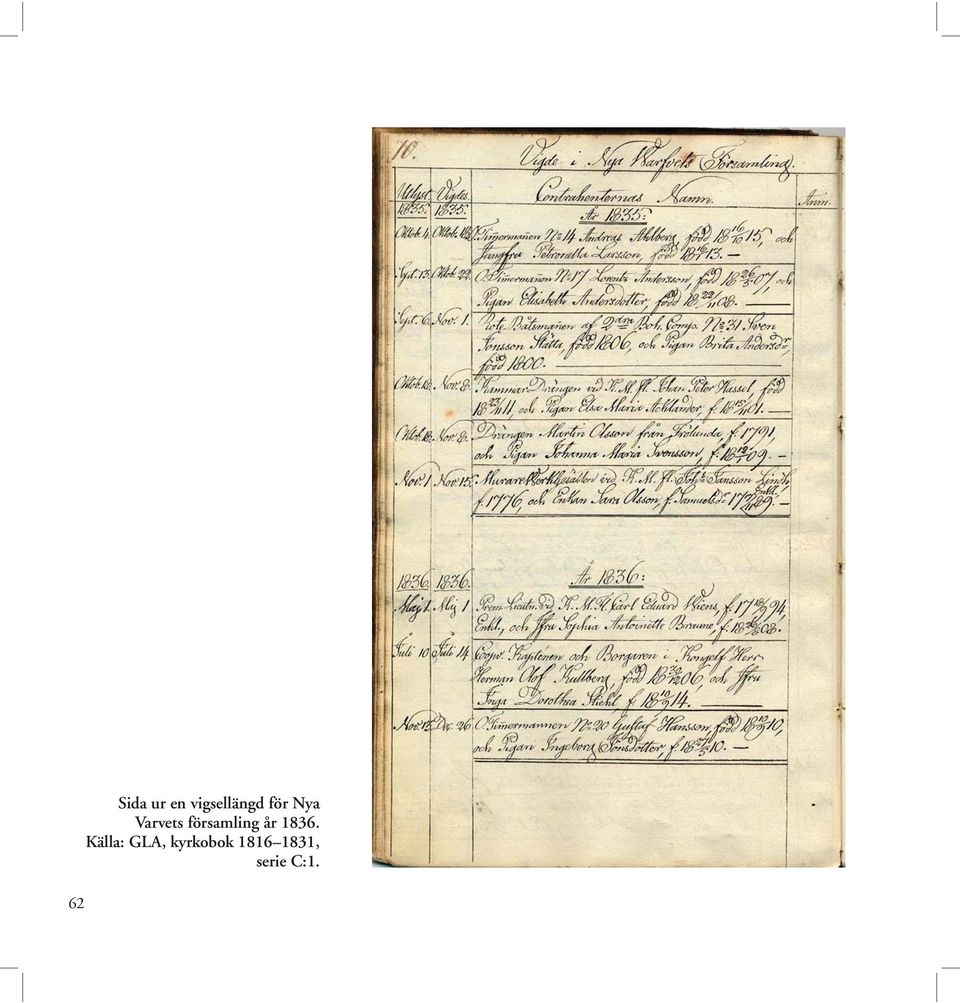 10. Vigde i Nya Warfvets Församling.
Utlyst. Vigdes. Contrahenternas Namn. Anm.
1835. 1835. År 1835:
Oktob. 4. Oktob. Timmermannen No 14 Andreas Ahlberg, född 18 16/10 15, och
Jungfru Petronella Larsson, född 18 13. —
Sept. 13. Oktob. 22. Timmermannen No 17 Lorents Andersson, född 18 26/5 07, och
Pigan Elisabeth Andersdotter, född 18 22/11 08. —
Sept. 6. Nov. 1. Rote Båtsmannen af 2dra Boh. Comp. No 31 Sven
Jonsson Stätta, född 1806, och Pigan Brita Andersdr,
född 1800. —
Oktob. 18. Nov. 8. Kammar Drängen vid K. M. fl. Johan Peter Hassel, född
18 23/4 11, och Pigan Elsa Maria Achlander, f. 18 01. —
Oktob. 18. Nov. 8. Drängen Martin Olsson från Frölunda, f. 1791,
och Pigan Johanna Maria Svensson, f. 18 09. —
Nov. 1 Nov. 15. Murare vid K. M. fl. Joh. Jansson Lindh, Enkl.,
f. 1776, och Enkan Sara Olsson, f. Samuelsdr 17 89. —
1836. 1836. År 1836:
Maj 1. Maj 1 Prem. Lieutn. vid K. M. fl. Carl Eduard Wiens, f. 17 94,
Enkl., och Jfru Sophia Antoinette Braune, f. 18 08.
Juli 10 Juli 14 Coopv. Kaptenen och Borgaren i Kongelf Herr
Herman Olof Kullberg, född 18 06, och Jfru
Inga Dorothea Stiehl, f. 18 10/9 14. —
Nov. 15. Dec. 26 Timmermannen No 20 Gustaf Hansson, född 18 10/9 10,
och Pigan Ingeborg Jönsdotter, f. 18 27/5 10. —
Sida ur en vigsellängd för Nya
Varvets församling år 1836.
Källa: GLA, kyrkobok 1816–1831,
serie C:1.
62